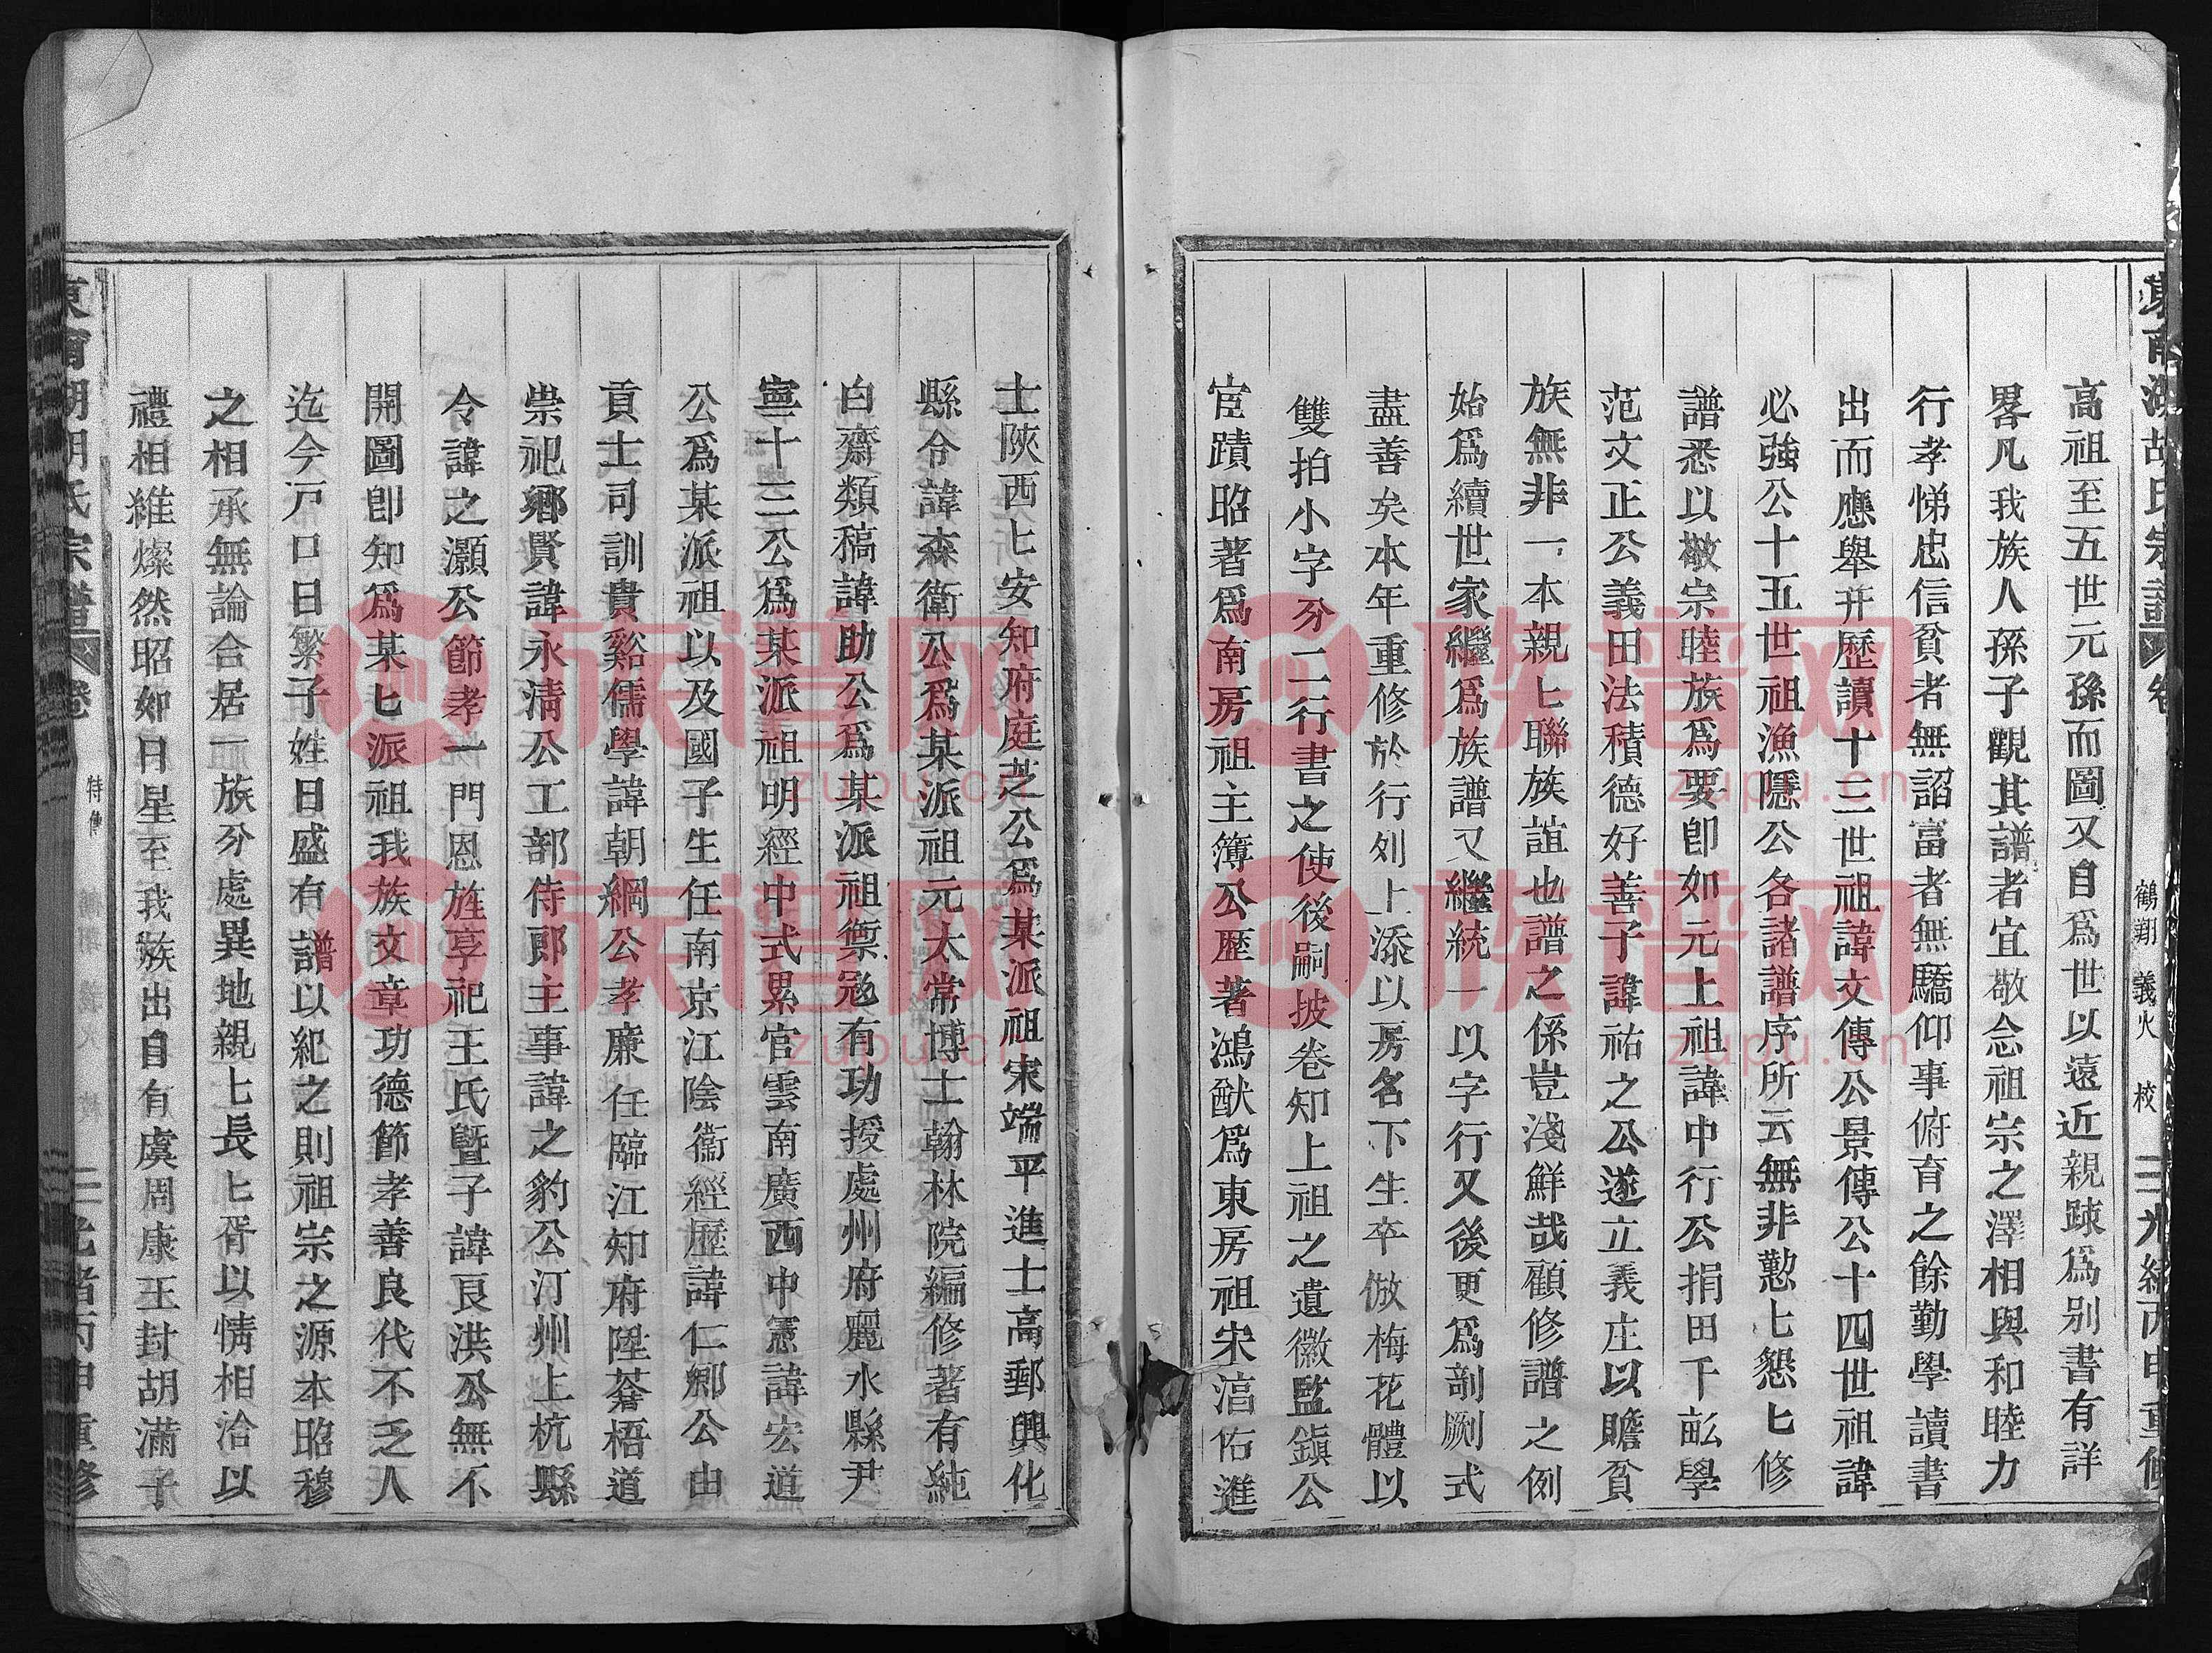 東南湖胡氏宗譜 卷 鶴翔義火 校 二 光緒丙申重修
高祖至五世元孫而圖又自爲世以遠近親踈爲别書有詳
畧凡我族人孫子觀其譜者宜敬念祖宗之澤相與和睦力
行孝悌忠信貧者無諂富者無驕仰事俯育之餘勤學讀書
出而應舉并歷讀十三世祖諱文傳公景傳公十四世祖諱
必強公十五世祖漁隱公各諸譜序所云無非懃匕懇匕修
譜悉以敬宗睦族爲要卽如元上祖諱中行公捐田千畝學
范文正公義田法積德好善子諱祐之公遂立義庄以贍貧
族無非一本親匕聯族誼也譜之係豈淺鮮哉顧修譜之例
始爲續世家繼爲族譜又繼統一以字行又後更爲剞劂式
盡善矣本年重修於行列上添以房名下生卒倣梅花體以
雙拍小字分二行書之使後嗣披卷知上祖之遺徽監鎭公
宦蹟昭著爲南房祖主簿公歷著鴻猷爲東房祖宋淯佑進
士陝西匕安知府庭芝公爲某派祖宋端平進士高郵興化
縣令諱森衛公爲某派祖元太常博士翰林院編修著有純
白齋類稿諱助公爲某派祖禦寇有功授處州府麗水縣尹
寧十三公爲某派祖明經中式累官雲南廣西中憲諱宏道
公爲某派祖以及國子生任南京江陰衞經歷諱仁卿公由
貢士司訓貴谿儒學諱朝綱公孝廉任臨江知府陞蒼梧道
崇祀鄉賢諱永淸公工部侍郎主事諱之豹公汀州上杭縣
令諱之灝公節孝一門恩旌享祀王氏曁子諱艮洪公無不
開圖卽知爲某匕派祖我族文章功德節孝善良代不乏人
迄今戸口日繁子姓日盛有譜以紀之則祖宗之源本昭穆
之相承無論合居一族分處異地親上長匕胥以情相洽以
禮相維燦然昭如日星至我族出自有虞周康王封胡滿子
東南湖胡氏宗譜 卷 特傳 二 光緒丙申重修
族谱网
zupu.cn
族谱网
zupu.cn
族谱网
zupu.cn
族谱网
zupu.cn